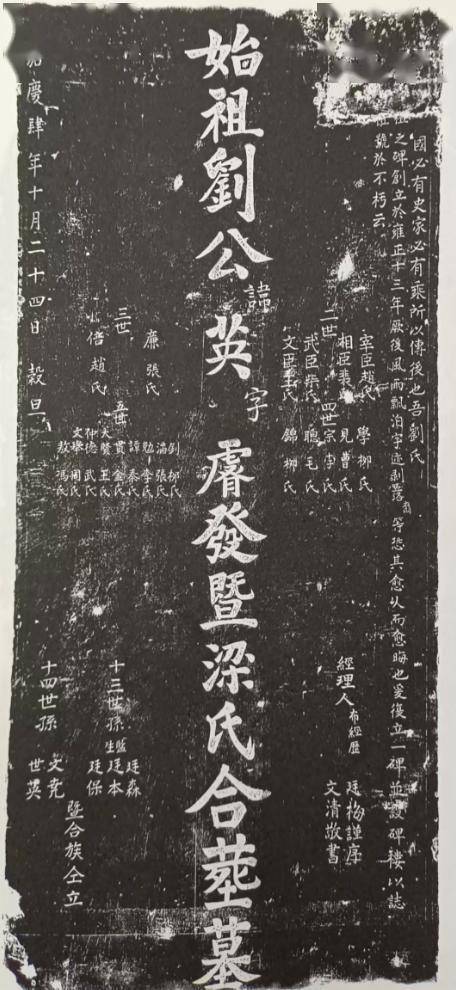 國必有史家必有乘所以傳後也吾劉氏
之碑創立於雍正十三年厥後風雨飄泊字迹剥落 等恐其愈久而愈晦也爰復立一碑並設碑樓以誌
號於不朽云
宰臣趙氏 學柳氏
相臣裴氏 見曹氏
二世 武臣柴氏 四世 宗李氏 聰毛氏
文臣王氏 錦柳氏
經理人 布經歷 廷梅謹序
文清敬書
始祖劉公諱英字膺發暨梁氏合塟墓
三世 廉張氏
倍趙氏
五世 劉柳氏
滿張氏
勉李氏
諄秦氏
貫金氏
大賢王氏
仲德武氏
文燦周氏
敖馮氏
十三世孫 監生 廷森
廷本
廷保
十四世孫 文堯
世英
暨合族仝立
嘉慶肆年十月二十四日 穀旦